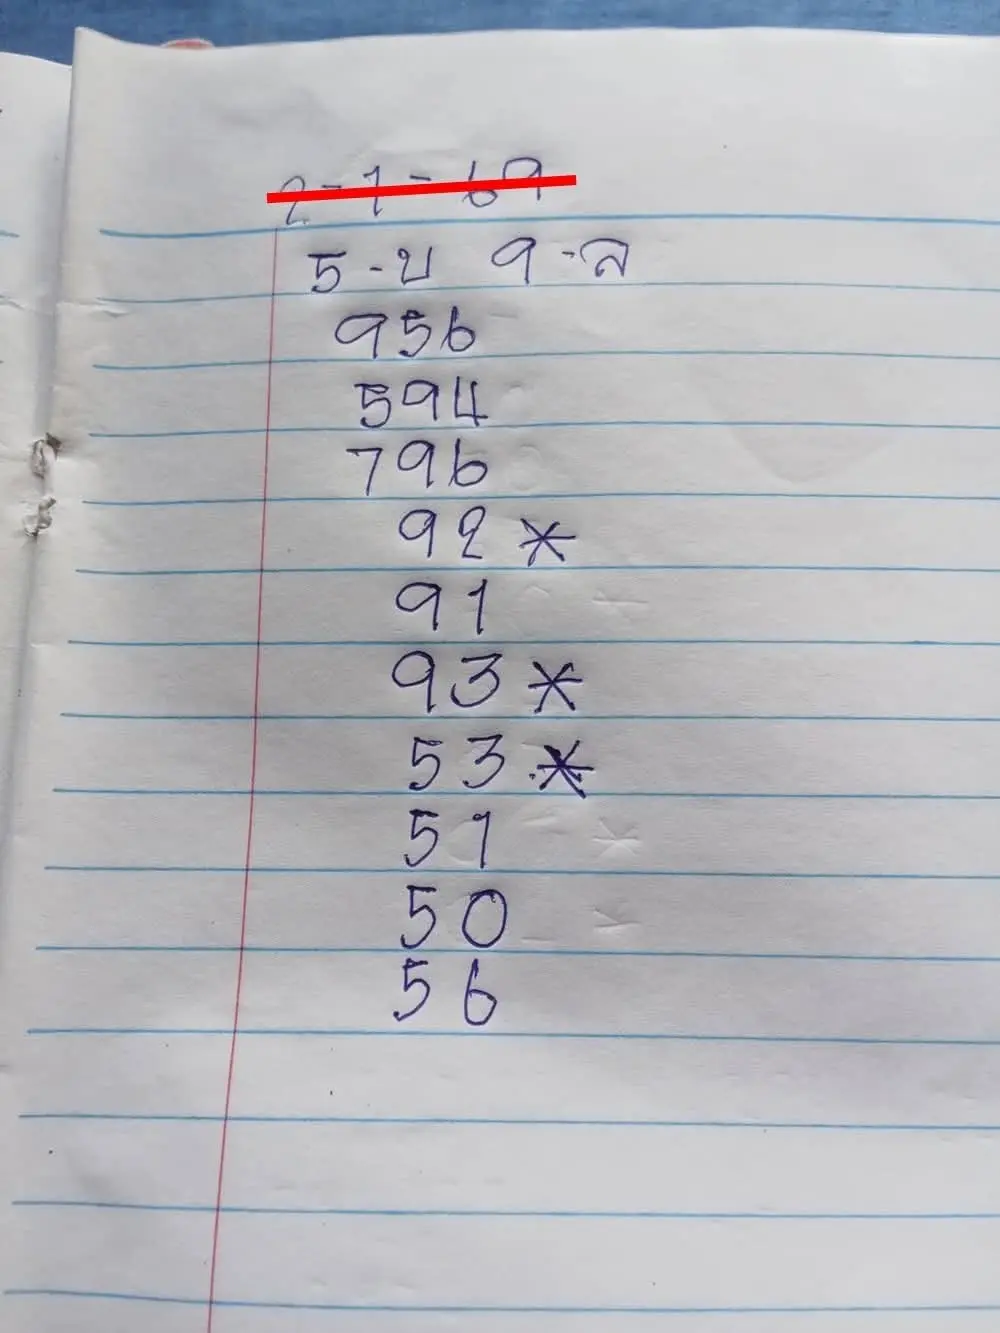 2-1-69
5-บ 9-ล
956
594
796
92 *
91
93 *
53 *
51
50
56